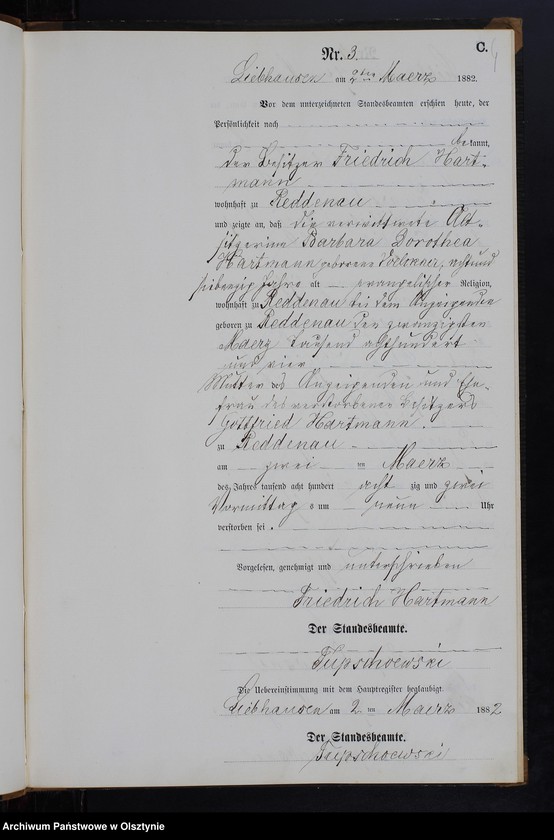 Nr. 3.
C.
Liebhausen am 2ten Maerz 1882.
Vor dem unterzeichneten Standesbeamten erschien heute, der
Persönlichkeit nach
bekannt,
der Besitzer Friedrich Hart-
mann
wohnhaft zu Reddenau
und zeigte an, daß die verwittwete Alt-
sitzerin Barbara Dorothea
Hartmann geborene acht und
siebenzig Jahre alt evangelischer Religion,
wohnhaft zu Reddenau bei dem Anzeigenden
geboren zu Reddenau den zwanzigsten
Maerz tausend achthundert
und vier
Mutter des Anzeigenden und Ehe-
frau des verstorbenen Besitzers
Gottfried Hartmann.
zu Reddenau
am zwei ten Maerz
des Jahres tausend acht hundert acht zig und zwei
Vormittags um neun Uhr
verstorben sei.
Vorgelesen, genehmigt und unterschrieben
Friedrich Hartmann
Der Standesbeamte.
Die Uebereinstimmung mit dem Hauptregister beglaubigt
Liebhausen am 2 ten Maerz 1882
Der Standesbeamte.
Archiwum Państwowe w Olsztynie